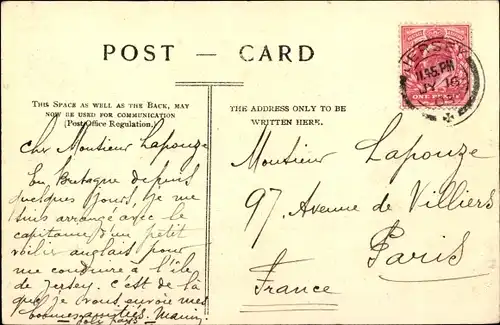 POST — CARD
JERSEY
7.45 PM
JY 16
ONE PENNY
THIS SPACE AS WELL AS THE BACK, MAY
NOW BE USED FOR COMMUNICATION
(Post Office Regulation.)
THE ADDRESS ONLY TO BE
WRITTEN HERE.
Cher Monsieur Lapouze
En Bretagne depuis
quelques jours, je me
suis arrangé avec le
capitaine d'un petit
voilier anglais pour
me conduire à l'île
de Jersey. C'est de là
que je vous envoie mes
bonnes amitiés
joli pays
Monsieur Lapouze
97, Avenue de Villiers
Paris
France